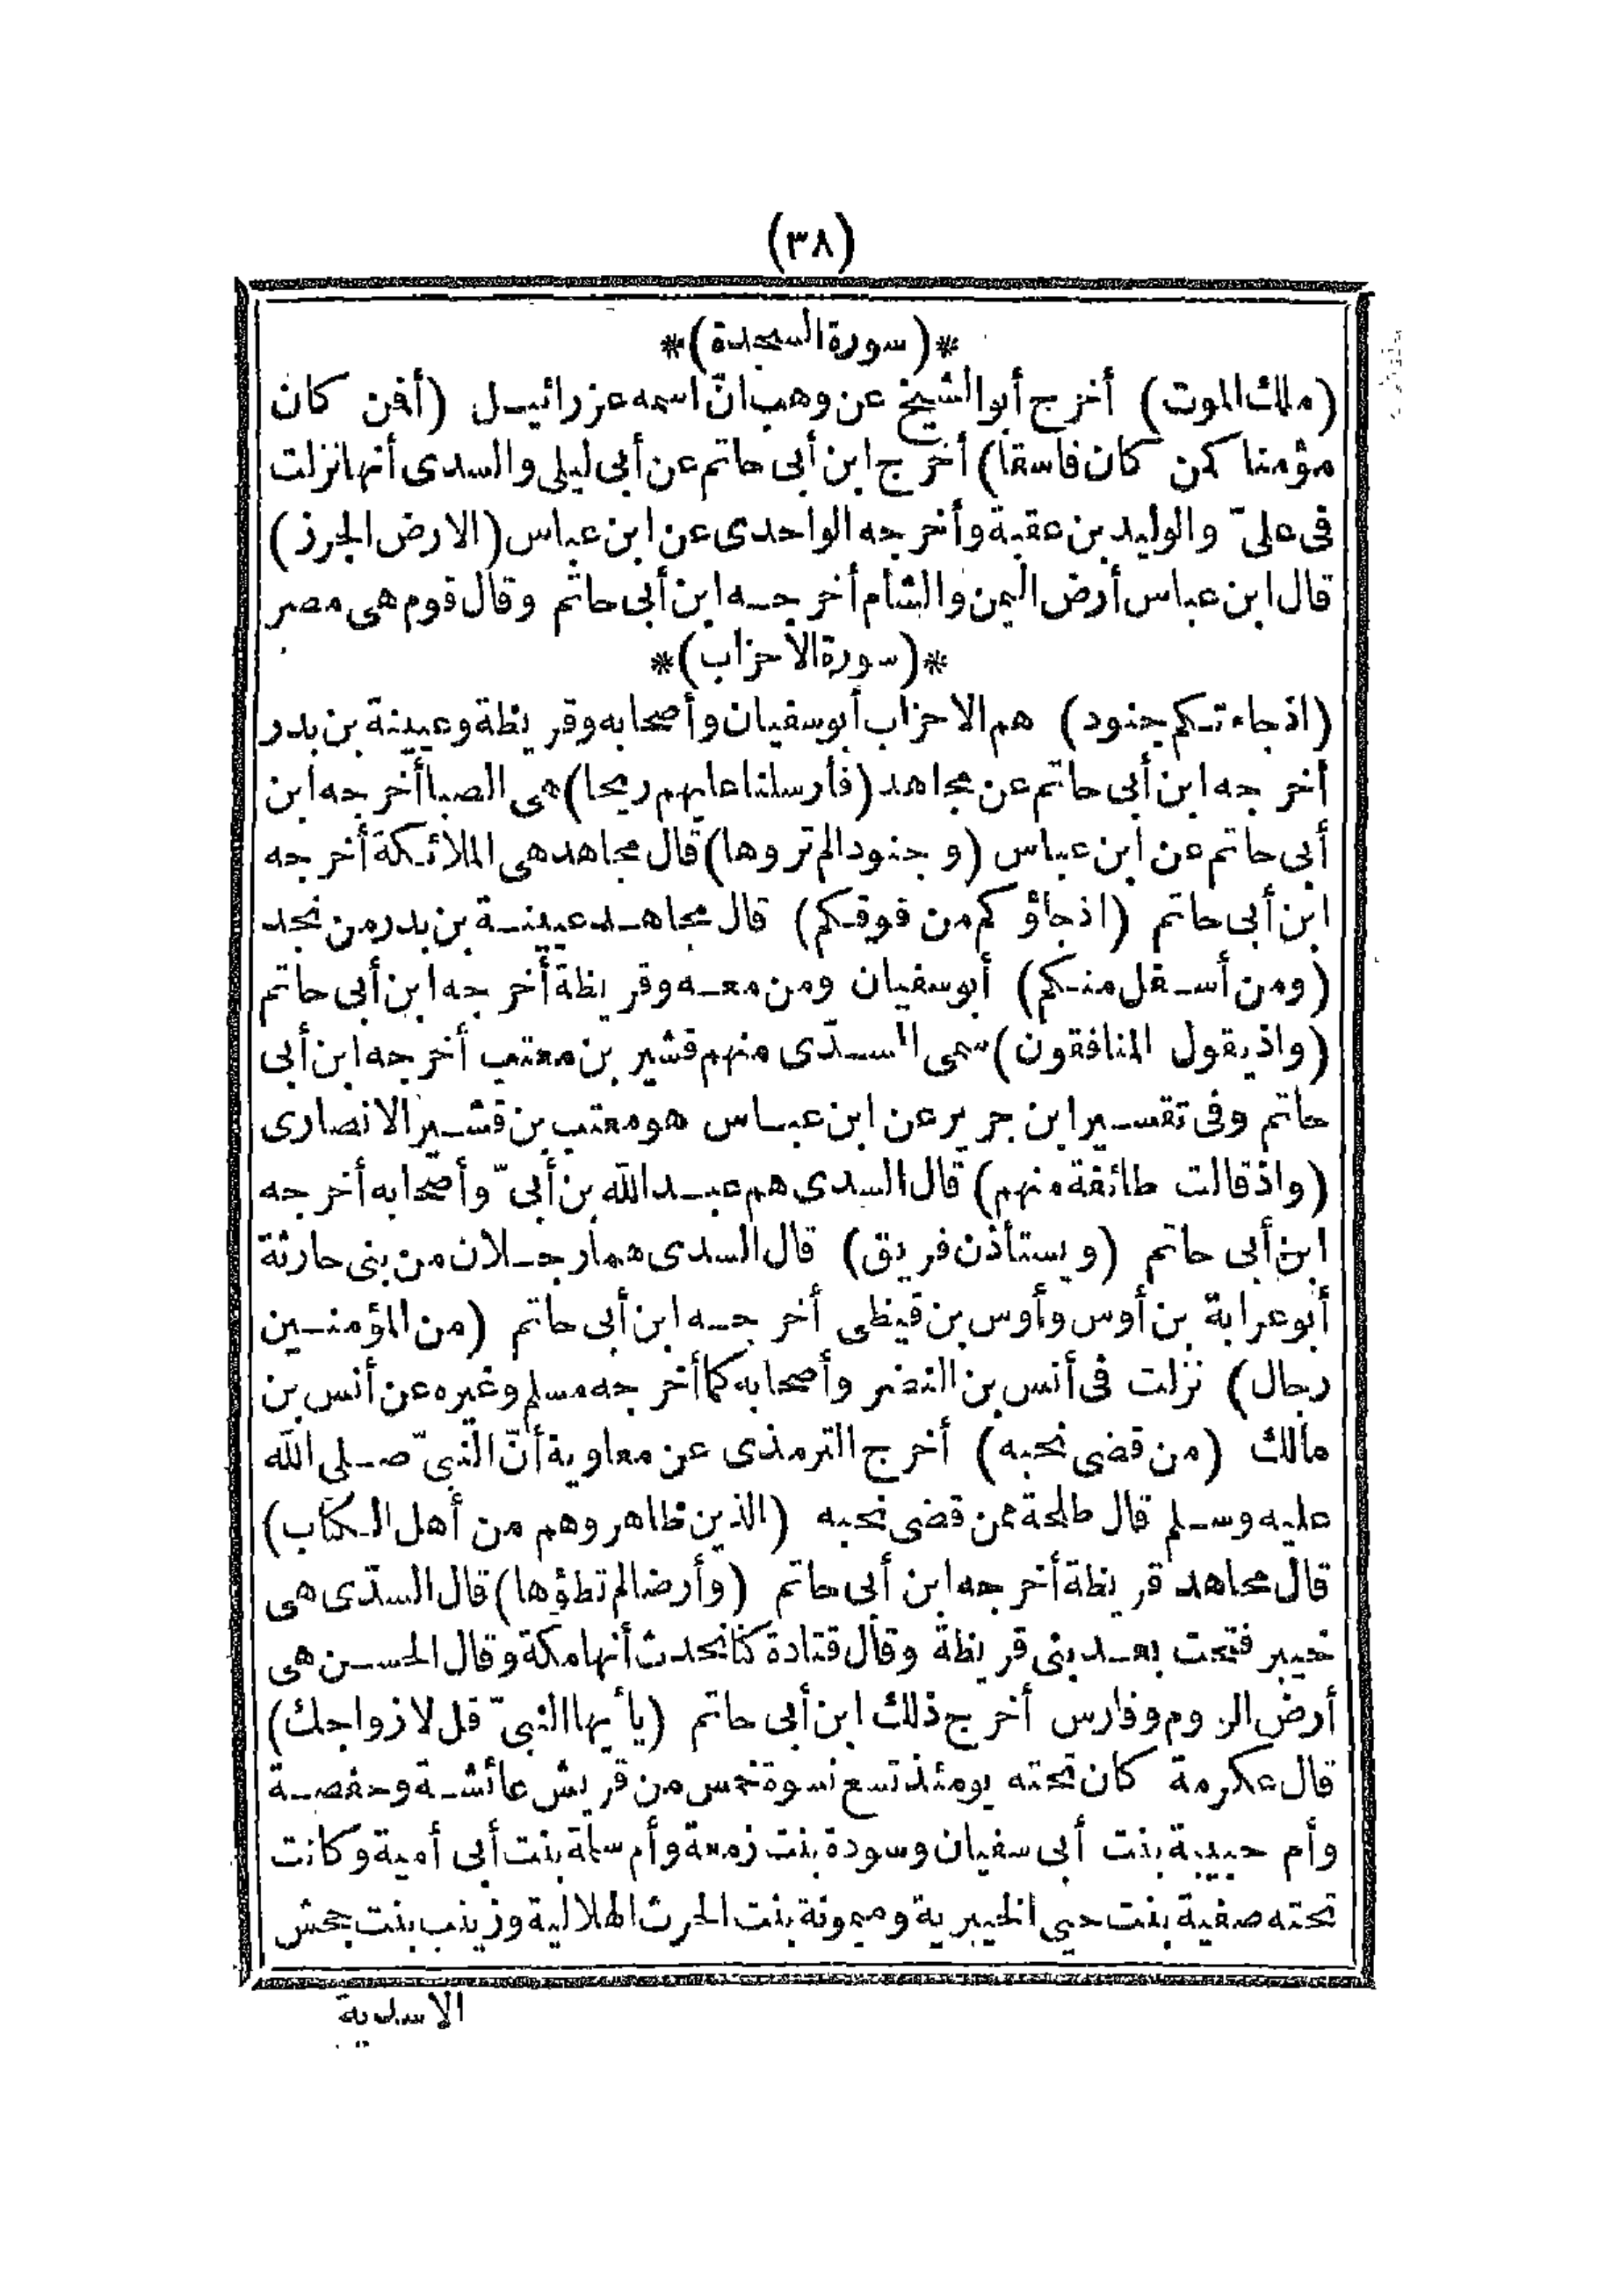 (٣٨)
*(سورة السجدة)*
(ملك الموت) أخرج أبو الشيخ عن وهب انّ اسمه عزرائيل (أفمن كان
مؤمنا كمن كان فاسقا) أخرج ابن أبى حاتم عن أبى ليلى والسدى أنها نزلت
فى علىّ والوليد بن عقبة وأخرجه الواحدى عن ابن عباس (الارض الجرز)
قال ابن عباس أرض اليمن والشأم أخرجه ابن أبى حاتم وقال قوم هى مصر
*(سورة الأحزاب)*
(اذ جاءتكم جنود) هم الاحزاب أبو سفيان وأصحابه وقريظة وعيينة بن بدر
أخرجه ابن أبى حاتم عن مجاهد (فأرسلنا عليهم ريحا) هى الصبا أخرجه ابن
أبى حاتم عن ابن عباس (وجنودا لم تروها) قال مجاهد هى الملائكة أخرجه
ابن أبى حاتم (اذ جاؤكم من فوقكم) قال مجاهد عيينة بن بدر من نجد
(ومن أسفل منكم) أبو سفيان ومن معه وقريظة أخرجه ابن أبى حاتم
(واذ يقول المنافقون) سمى السدّى منهم قشير بن معتب أخرجه ابن أبى
حاتم وفى تفسير ابن جرير عن ابن عباس هو معتب بن قشير الانصارى
(واذ قالت طائفة منهم) قال السدى هم عبد الله بن أبىّ وأصحابه أخرجه
ابن أبى حاتم (ويستأذن فريق) قال السدى هما رجلان من بنى حارثة
أبو عرابة بن أوس وأوس بن قيظى أخرجه ابن أبى حاتم (من المؤمنين
رجال) نزلت فى أنس بن النضر وأصحابه كما أخرجه مسلم وغيره عن أنس بن
مالك (من قضى نحبه) أخرج الترمذى عن معاوية أنّ النبىّ صلى الله
عليه وسلم قال طلحة ممن قضى نحبه (الذين ظاهروهم من أهل الكتاب)
قال مجاهد قريظة أخرجه ابن أبى حاتم (وأرضا لم تطؤها) قال السدّى هى
خيبر فتحت بعد بنى قريظة وقال قتادة كنا نحدث أنها مكة وقال الحسن هى
أرض الروم وفارس أخرج ذلك ابن أبى حاتم (يا أيها النبىّ قل لازواجك)
قال عكرمة كان تحته يومئذ تسع نسوة خمس من قريش عائشة وحفصة
وأم حبيبة بنت أبى سفيان وسودة بنت زمعة وأم سلمة بنت أبى أمية وكانت
تحته صفية بنت حيي الخيبرية وميمونة بنت الحرث الهلالية وزينب بنت جحش
الاسدية